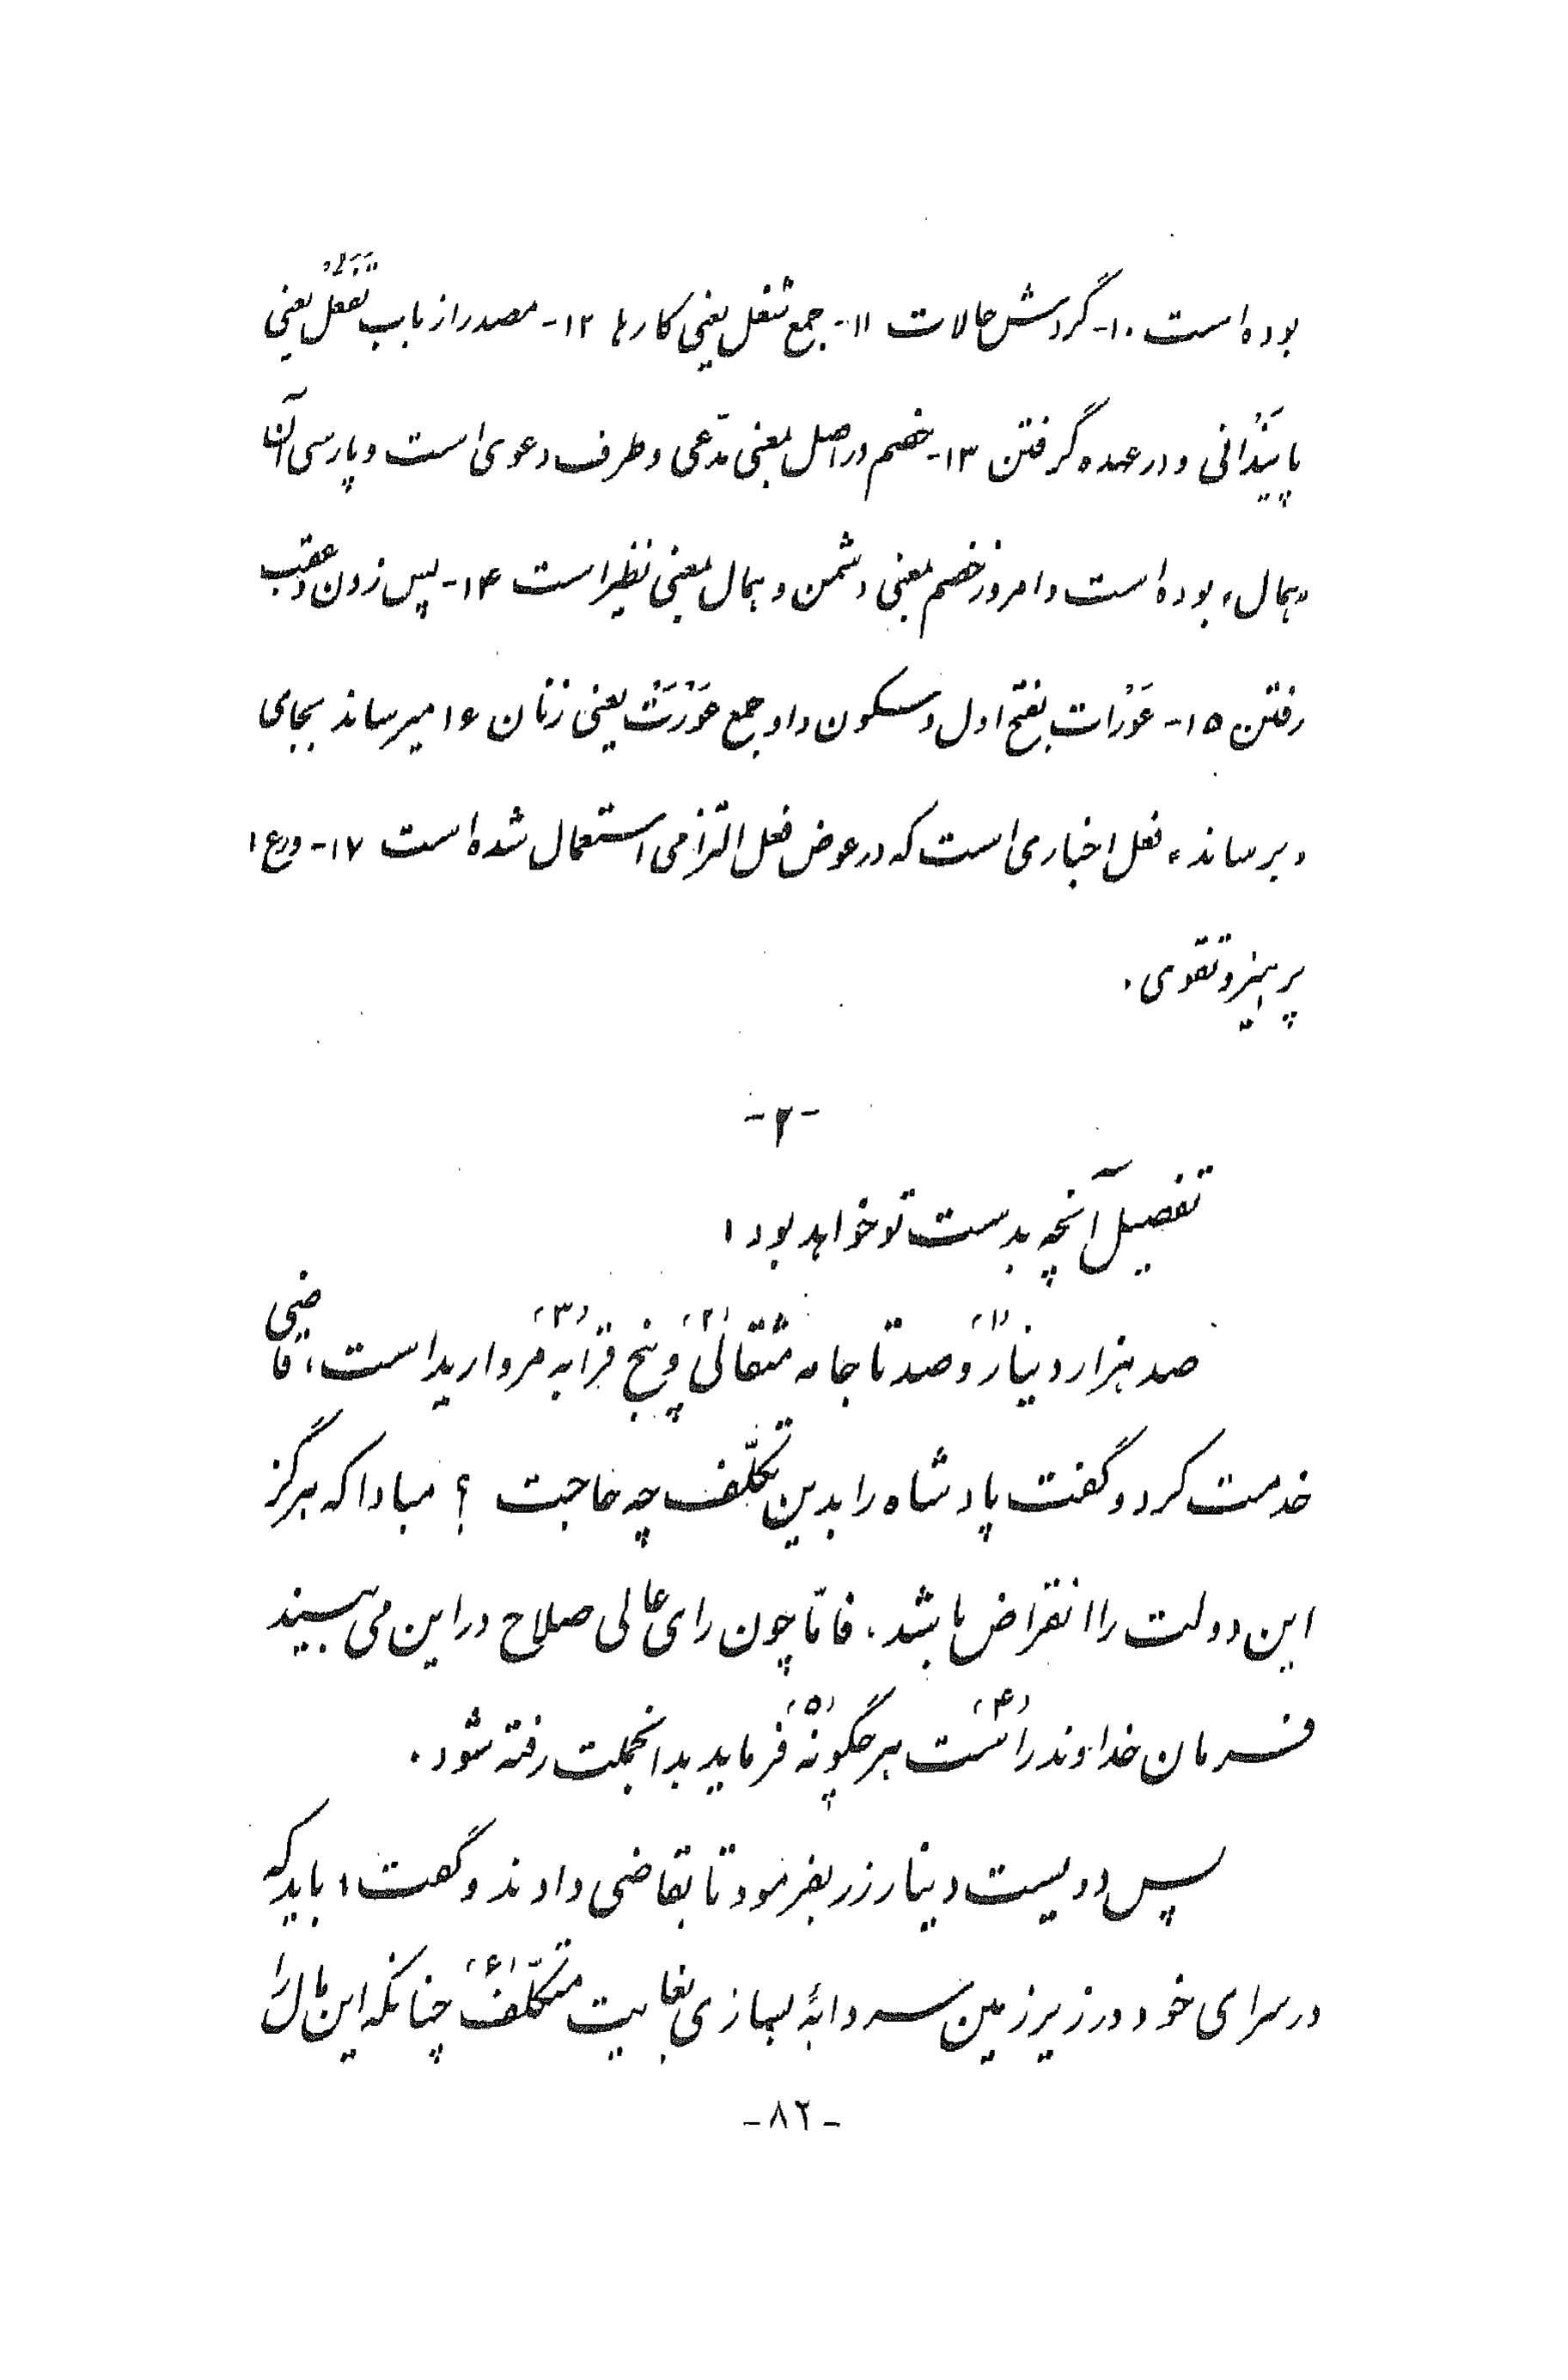 بوده است ۱۰- گردش حالات ۱۱- جمع شغل یعنی کارها ۱۲- مصدر از باب تَفَعُّل یعنی
پایَنْدانی و در عهده گرفتن ۱۳- خصم در اصل بمعنی مدّعی و طرف دعوی است و پارسی آن
«همال» بوده است و امروز خصم بمعنی دشمن و همال بمعنی نظیر است ۱۴- پس زدن و عقب
رفتن ۱۵- عَوْرات بفتح اول و سکون واو جمع عَوْرَتْ یعنی زنان ۱۶ میرساند بجای
«برساند» فعل اخباری است که در عوض فعل التزامی استعمال شده است ۱۷- ورع:
پرهیز و تقوی.
-۲-
تفصیل آنچه بدست تو خواهد بود:
صد هزار دینار(۱) و صد تا جامه مثقالی(۲) و پنج قرّابه(۳) مروارید است، قاضی
خدمت کرد و گفت پادشاه را بدین تکلّف چه حاجت ؟ مبادا که هرگز
این دولت را انقراض باشد، فامّا چون رای عالی صلاح در این می بیند
فرمان خداوند راست(۴) هرچگونه(۵) فرماید بدانجملت رفته شود.
پس دویست دینار زر بفرمود تا بقاضی دادند و گفت: باید که
در سرای خود در زیر زمین سردابهٔ بسازی بغایت متکلّف(۶) چنانکه این مال را
-۸۲-